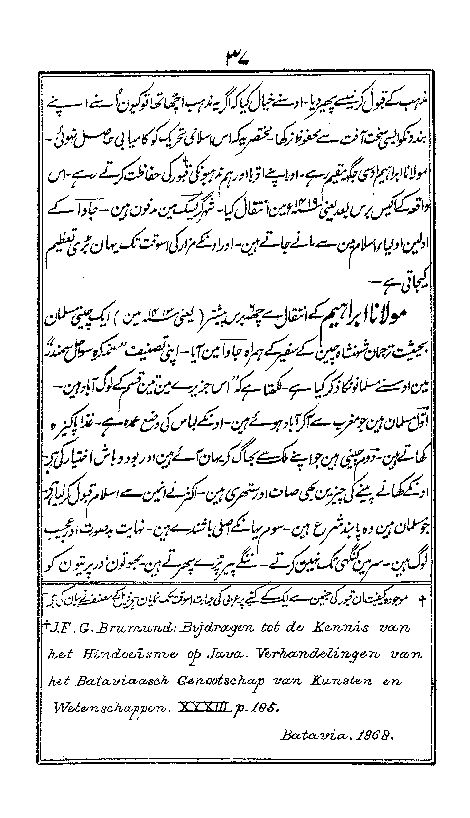 ۳۷
مذہب کے قبول کرنیسے پھیر دیا۔ اوسنے خیال کیا کہ اگر یہ مذہب اچھا تھا تو کیون اسنے اپنے
بندونکو ایسی سخت آفت سے محفوظ نہ رکھا۔ مختصر یہ کہ اس اسلامی تحریک کو کامیابی حاصل نہوئی۔
مولانا ابراہیم اوسی جگہ مقیم رہے۔ اور اپنے اقربا اور ہم مذہبونکی قبور کی حفاظت کرتے رہے۔ اس
واقعہ کے اکیس برس بعد یعنی ۱۴۱۹ء مین انتقال کیا۔ شہر گریسک مین مدفون ہین۔ جاوا کے
اولین اولیاء اسلام مین سے مانے جاتے ہین۔ اور اونکے مزار کی اسوقت تک یہان بڑی تعظیم
کیجاتی ہے۔
مولانا ابراہیم کے انتقال سے چھ برس پیشتر (یعنی ۱۴۱۳ء مین) ایک چینی مسلمان
بحیثیت ترجمان شہنشاہ چین کے سفیر کے ہمراہ جاوا مین آیا۔ اپنی تصنیف تذکرہ سواحل سمندر
مین اوسنے مسلمانونکا ذکر کیا ہے۔ لکھتا ہے کہ اس جزیرے مین تین قسم کے لوگ آباد ہین۔
اوّل مسلمان ہین جو مغرب سے آکر آباد ہوئے ہین۔ اونکے لباس کی وضع عمدہ ہے۔ غذا پاکیزہ
کھاتے ہین۔ دوم چینی ہین جو اپنے ملک سے بھاگ کر یہان آئے ہین اور بود و باش اختیار کی ہے
اونکے کھانے پینے کی چیزین بھی صاف اور ستھری ہین۔ اکثر نے انمین سے اسلام قبول کر لیا ہے
جو مسلمان ہین وہ پابند شرع ہین۔ سوم یہانکے اصلی باشندے ہین۔ نہایت بدصورت اور عجیب
لوگ ہین۔ سر مین کنگھی تک نہین کرتے۔ ننگے پیر پڑے پھرتے ہین۔ بھوتون اور پریتون کو
† موجودہ کیفیت ان قبور کی جنمین سے ایک کے کتبے پر عربی کی عبارت اسوقت تک نمایان ہے
†J.F.G. Brumund: Bijdragen tot de Kennis van
het Hindoeisme op Java. Verhandelingen van
het Bataviaasch Genootschap van Kunsten en
Wetenschappen. XXXIII p. 185.
Batavia. 1868.